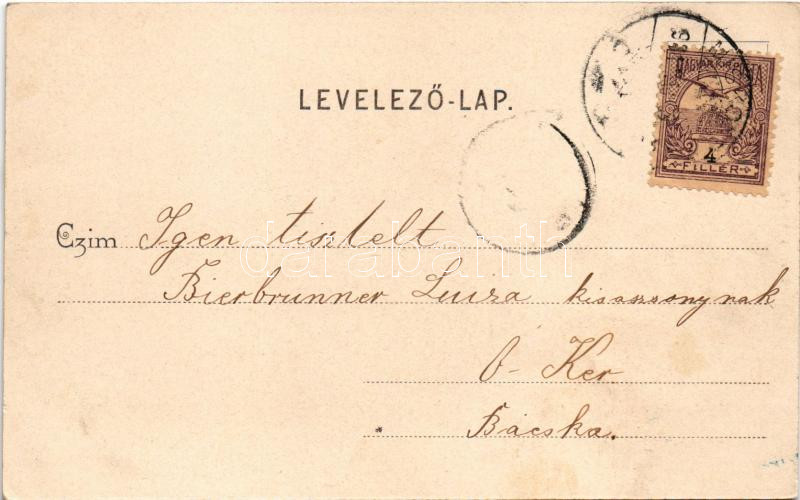 LEVELEZŐ-LAP.
MAGYAR KIR. POSTA
4
FILLÉR
Czim Igen tisztelt
Bierbrunner Luiza kisasszonynak
Ó-Ker
Bácska.
darabanth